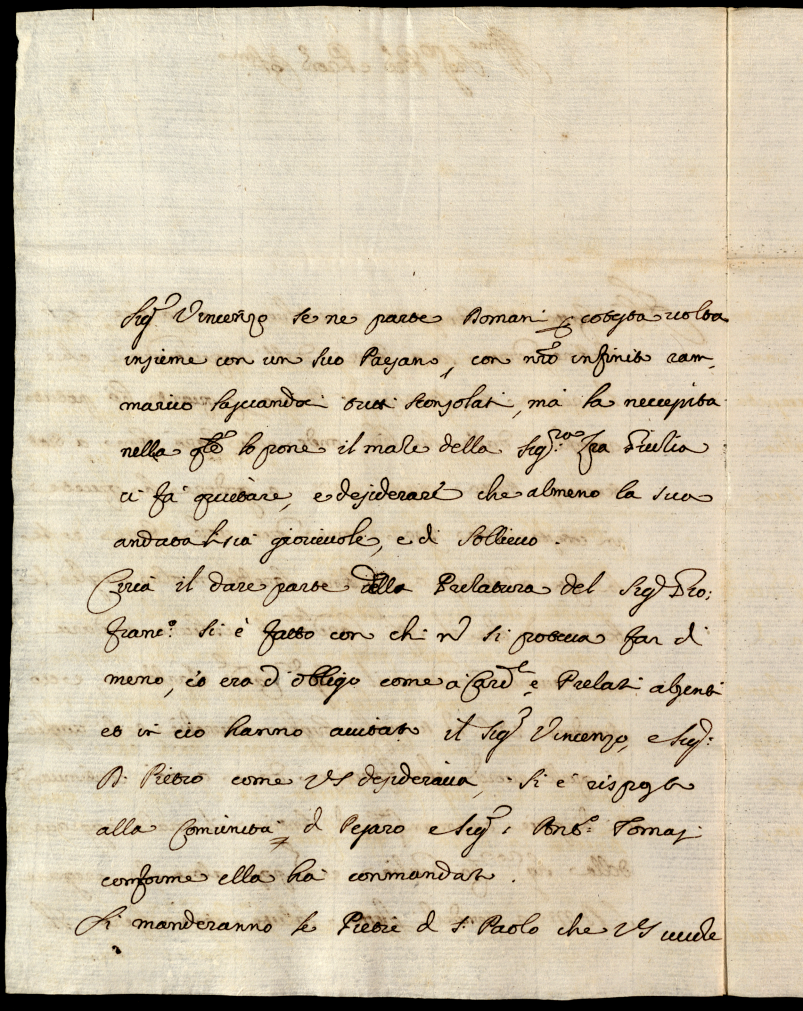 Sig.r Vincenzo se ne parte Domani per cotesta volta
insieme con un suo Paesano, con nr̃o infinito ram-
marico lasciandoci tutti sconsolati, mà la necessità
nella qle lo pone il male della Sig.ra Giulia
ci fà quietare, e desiderare che almeno la sua
andata sia giovevole, e di sollievo.
Circa il dare parte della Prelatura del Sig.r Gio:
Franc.o si è fatto con chi nõ si poteva far di
meno, e era d'obligo come a Card.l e Prelati absenti
et in ciò hanno aiutato il Sig.r Vincenzo, e Sig.r
D. Pietro come VS desiderava, si è risposto
alla Comunità di Pesaro e Sig.r Ant.o Tomasi
conforme ella hà commandato.
Si manderanno le Pietre di S. Paolo che VS